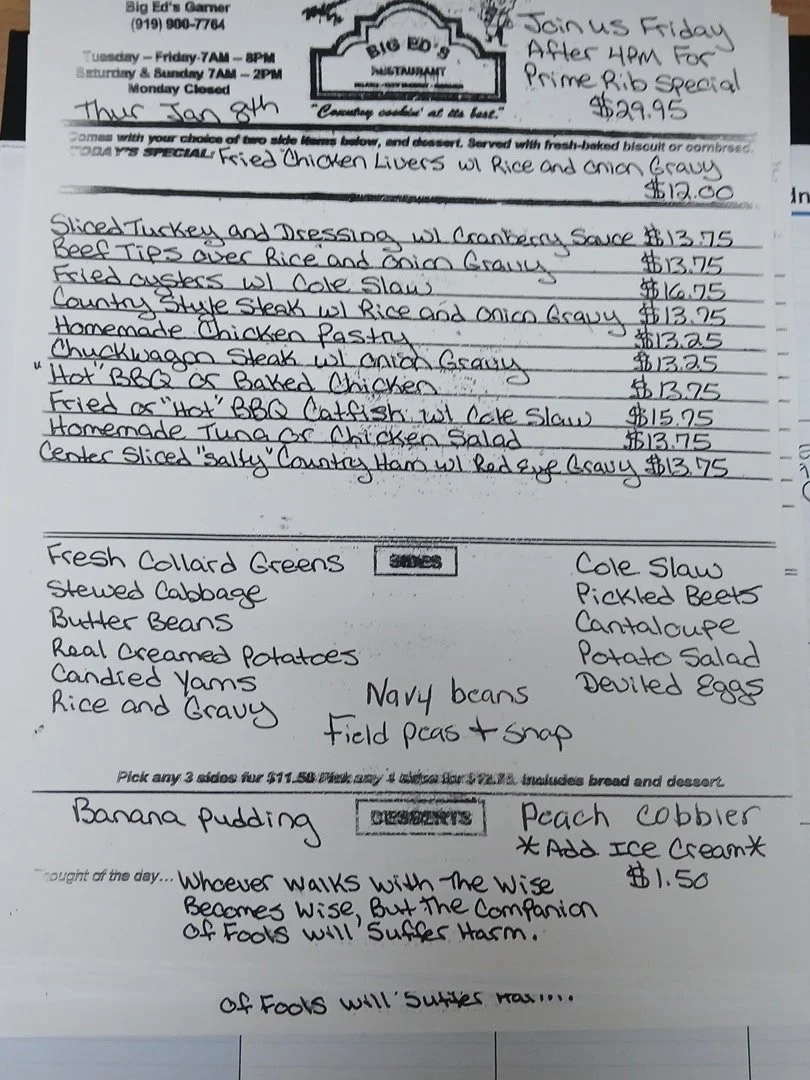 Big Ed's Garner
(919) 900-7764
Tuesday – Friday 7AM – 8PM
Saturday & Sunday 7AM – 2PM
Monday Closed
Thur Jan 8th
BIG ED'S
RESTAURANT
"Country cookin' at its best."
Join us Friday
After 4PM For
Prime Rib Special
$29.95
Comes with your choice of two side items below, and dessert. Served with fresh-baked biscuit or cornbread.
TODAY'S SPECIAL: Fried Chicken Livers w/ Rice and Onion Gravy
$12.00
Sliced Turkey and Dressing w/ Cranberry Sauce $13.75
Beef Tips over Rice and Onion Gravy $13.75
Fried oysters w/ Cole Slaw $16.75
Country Style Steak w/ Rice and Onion Gravy $13.75
Homemade Chicken Pastry $13.25
Chuckwagon Steak w/ Onion Gravy $13.25
"Hot" BBQ or Baked Chicken $13.75
Fried or "Hot" BBQ Catfish w/ Cole Slaw $15.75
Homemade Tuna or Chicken Salad $13.75
Center Sliced "Salty" Country Ham w/ Red Eye Gravy $13.75
SIDES
Fresh Collard Greens
Stewed Cabbage
Butter Beans
Real Creamed Potatoes
Candied Yams
Rice and Gravy
Navy beans
Field peas + snap
Cole Slaw
Pickled Beets
Cantaloupe
Potato Salad
Deviled Eggs
Pick any 3 sides for $11.50 Pick any 4 sides for Includes bread and dessert.
DESSERTS
Banana Pudding
Peach Cobbler
*Add Ice Cream*
$1.50
Thought of the day... Whoever walks with The Wise
Becomes Wise, But The Companion
Of Fools will Suffer Harm.
Of Fools will Suffer